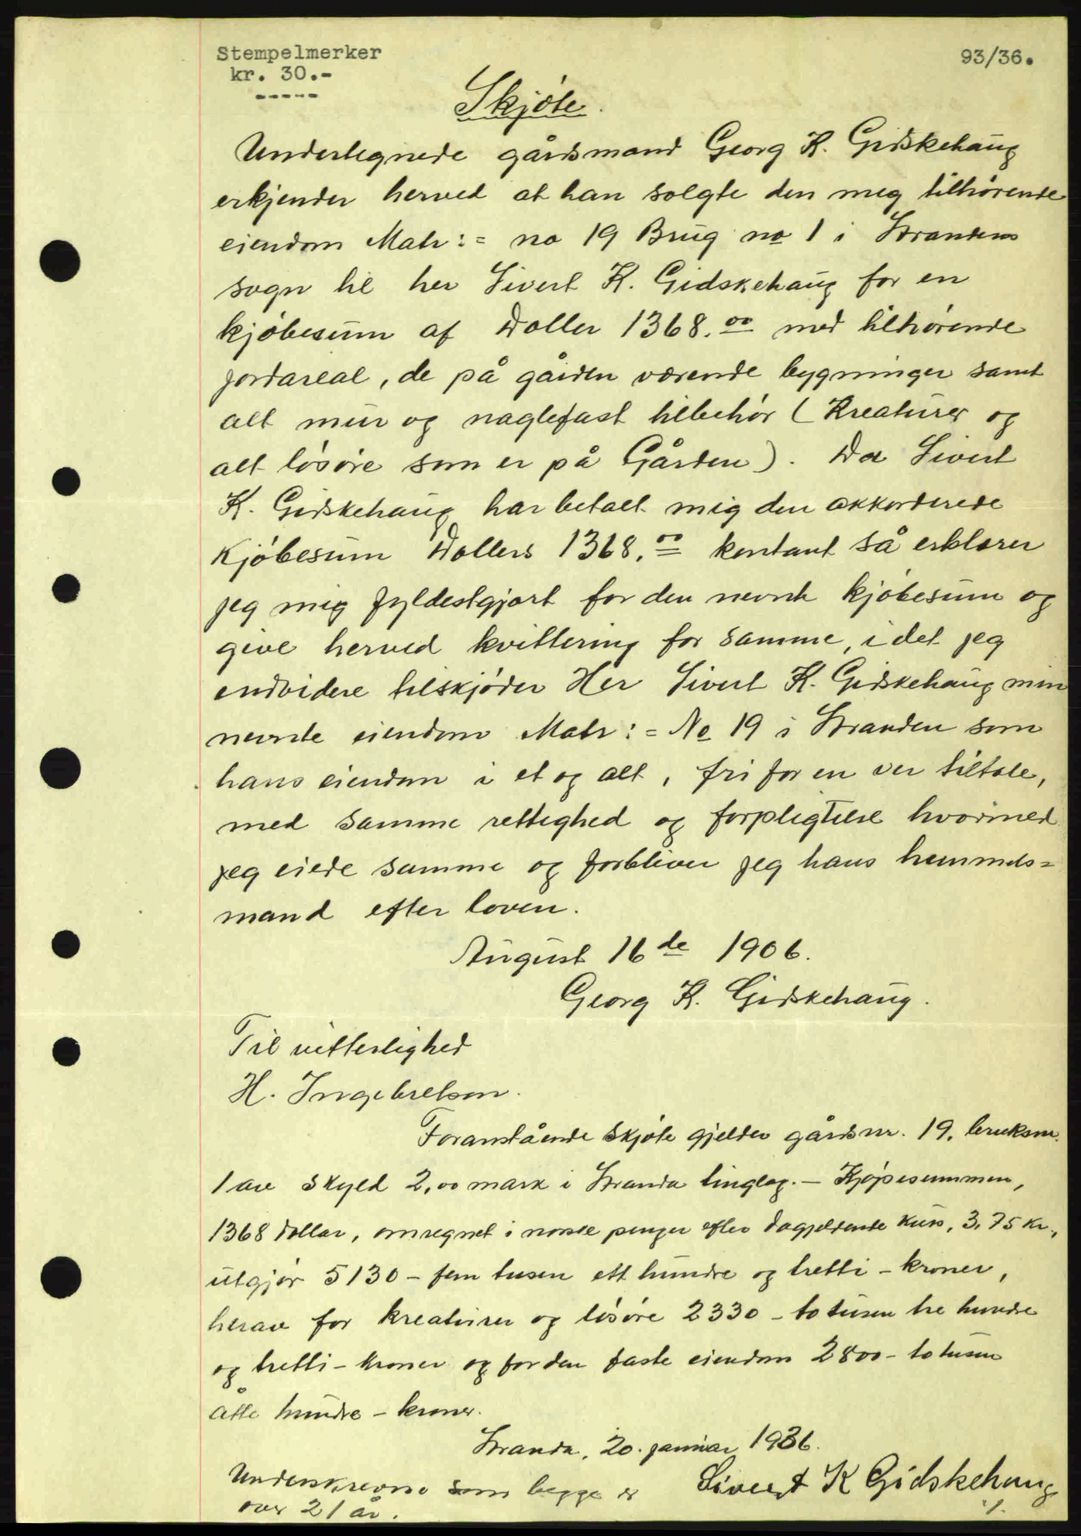 Stempelmerker
kr. 30.-
-----
93/36.
Skjöte.
Undertegnede gårdsmand Georg K. Gidskehaug
erkjender herved at han solgte den meg tilhörende
eiendom Matr:= no 19 Brug no 1 i Strandens
sogn til her Sivert K. Gidskehaug for en
kjöbesum af Doller 1368.00 med tilhörende
jordareal, de på gården værende bygninger samt
alt mur og naglefast tilbehör (Kreaturer og
alt lösöre som er på Gården). Da Sivert
K. Gidskehaug har betalt mig den akkorderede
Kjöbesum Dollers 1368.00 kontant så erklærer
jeg mig fyldestgjort for den nevnte kjöbesum og
give herved kvittering for samme, i det jeg
endvidere tilskjöder Her Sivert K. Gidskehaug min
nevnte eiendom Matr:= No 19 i Stranden som
hans eiendom i et og alt, fri for en ver tiltale,
med samme rettighed og forpligtelse hvormed
jeg eiede samme og forbliver jeg hans hemmels=
mand efter loven.
August 16de 1906.
Georg K. Gidskehaug.
Til vitterlighed
H. Ingebretson.
Foranstående skjöte gjelder gårdsnr. 19, bruksnr.
1 av skyld 2,00 mark i Stranda tinglag. – Kjöpesummen,
1368 dollar, omregnet i norske penger efter dagjeldende kurs, 3,75 kr.,
utgjör 5130 – fem tusen ett hundre og tretti – kroner,
herav for kreaturer og lösöre 2330 – to tusen tre hundre
og tretti – kroner og for den faste eiendom 2800 – to tusen
åtte hundre – kroner.
Stranda, 20. januar 1936.
Underskrevne som begge er
over 21 år.
Sivert K Gidskehaug